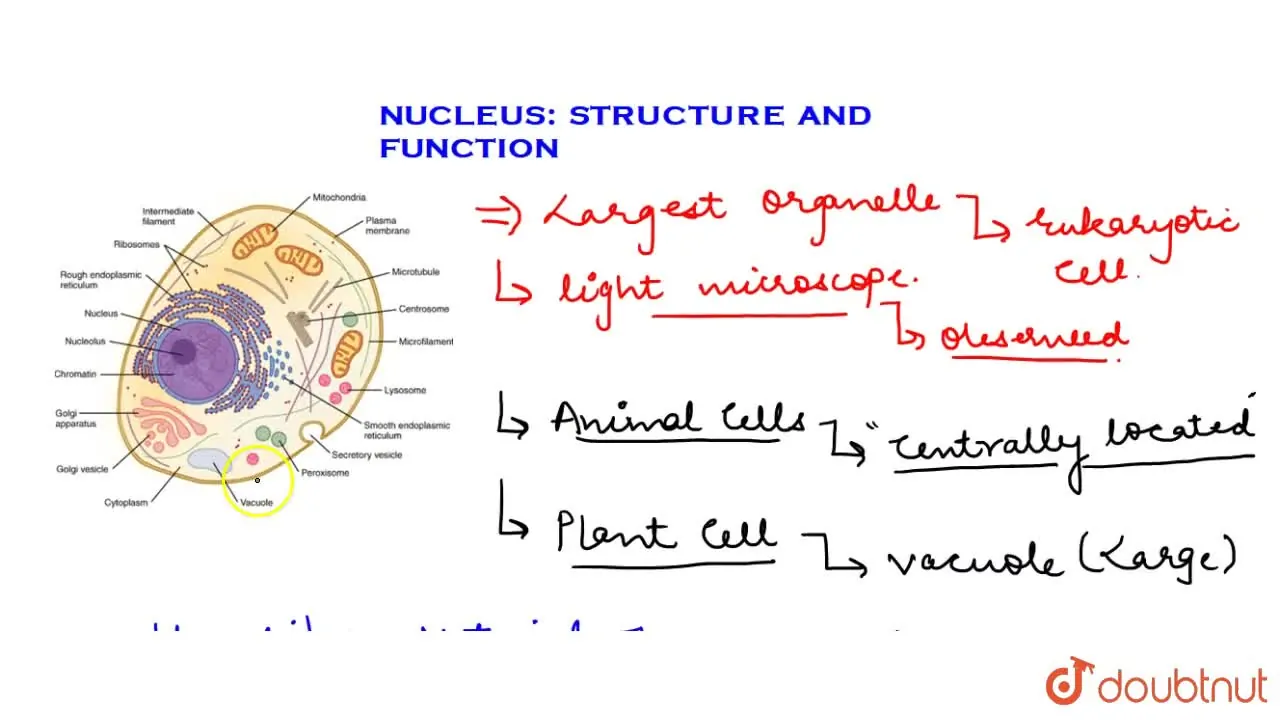 NUCLEUS: STRUCTURE AND
FUNCTION
Mitochondria
Intermediate
filament
Plasma
membrane
Ribosomes
Rough endoplasmic
reticulum
Microtubule
Nucleus
Centrosome
Nucleolus
Microfilament
Chromatin
Lysosome
Golgi
apparatus
Smooth endoplasmic
reticulum
Golgi vesicle
Secretory vesicle
Peroxisome
Cytoplasm
Vacuole
⇒ Largest organelle ↳ Eukaryotic
Cell.
↳ light microscope.
↳ Observed
↳ Animal Cells ↳ "Centrally located
↳ Plant Cell ↳ vacuole (Large)
doubtnut